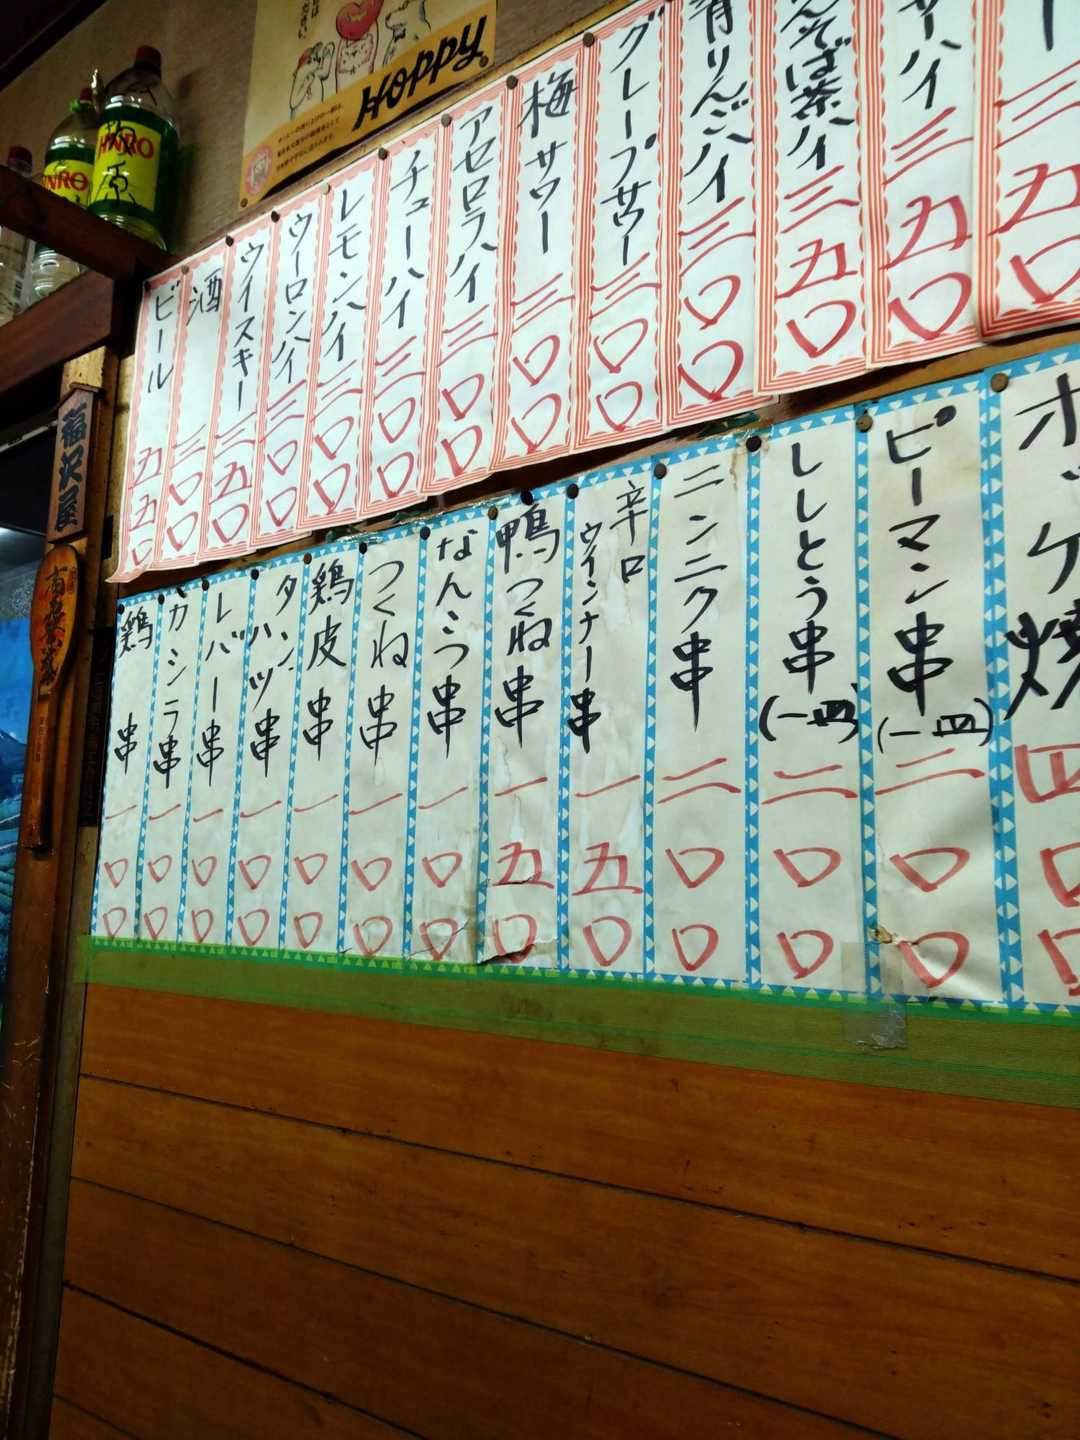 Hoppy
JINRO
JINRO
福沢屋
ビール 五五〇
酒 三〇〇
ウイスキー 三五〇
ウーロンハイ 三〇〇
レモンハイ 三〇〇
チューハイ 三〇〇
アセロラハイ 三〇〇
梅サワー 三〇〇
グレープサワー 三〇〇
青りんごハイ 三〇〇
んそば茶ハイ 三五〇
サーハイ 三五〇
三五〇
鶏串 一〇〇
カシラ串 一〇〇
レバー串 一〇〇
タン ハツ串 一〇〇
鶏皮串 一〇〇
つくね串 一〇〇
なんこつ串 一〇〇
鴨つくね串 一五〇
辛口ウインナー串 一五〇
ニンニク串 二〇〇
ししとう串(一皿) 二〇〇
ピーマン串(一皿) 二〇〇
ホッケ焼 四〇〇